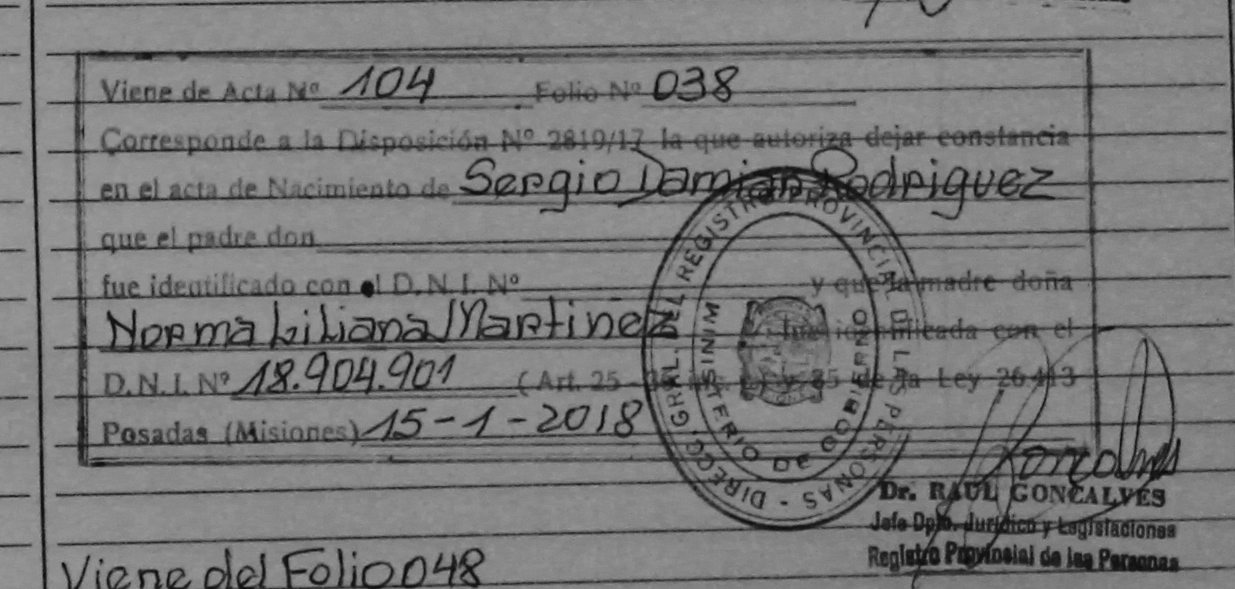 Viene de Acta Nº 104 Folio Nº 038
Corresponde a la Disposición Nº 2819/17 la que autoriza dejar constancia
en el acta de Nacimiento de Sergio Damian Rodriguez
que el padre don
fue identificado con el D.N.I. Nº y que la madre doña
Norma Liliana Martinez fue identificada con el
D.N.I. Nº 18.904.901 (Art. 25 y 85 de la Ley 26.413
Posadas (Misiones) 15-1-2018
DIRECC. GRAL. DEL REGISTRO PROVINCIAL DE LAS PERSONAS -
MINISTERIO DE GOBIERNO
Goncalves
Dr. RAUL GONCALVES
Jefe Dpto. Jurídico y Legislaciones
Registro Provincial de las Personas
Viene del Folio 048